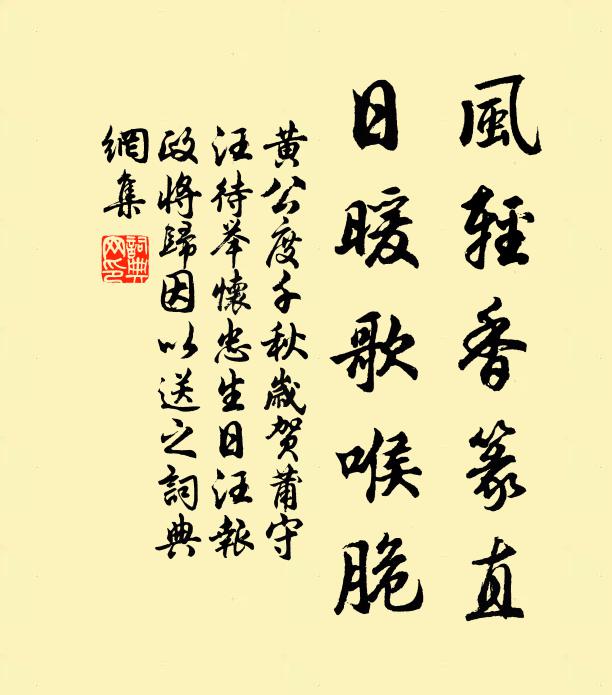 風輕香篆直
日暖歌喉脆
黄公度千秋歲贺莆守
汪待举懷忠生日汪報
政將歸因以送之詞典
網集
詞典
网印